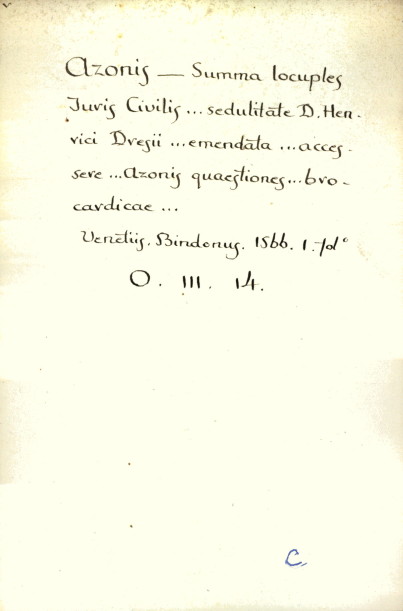 Azonis — Summa locuples
Juris Civilis ... sedulitate D. Hen-
rici Dresii ... emendata ... acces-
sere ... Azonis quaestiones ... bro-
cardicae ...
Venetiis. Bindonus. 1566. 1. fol°
O. III. 14.
C.